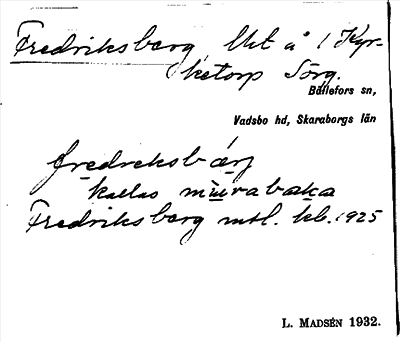 Fredriksberg, lht å 1 Kyr-
ketorp Sörg.
Bällefors sn,
Vadsbo hd, Skaraborgs län
fredreksbärj
kallas mùrabaka
Fredriksberg mtl. kb. 1925
L. MADSÉN 1932.